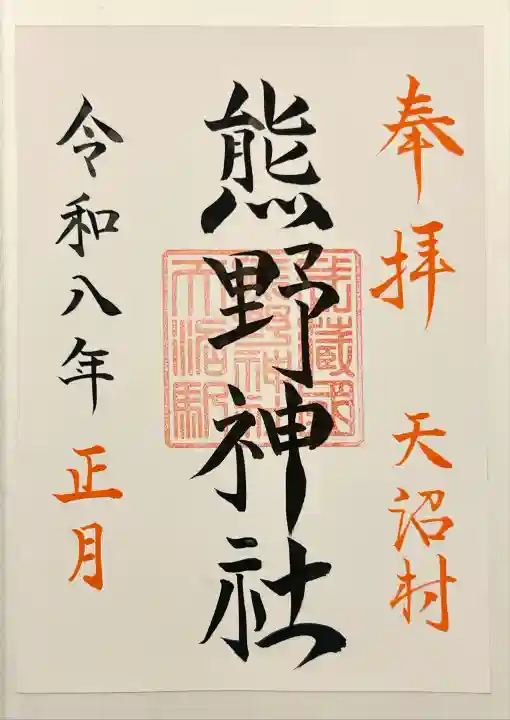 奉拝 天沼村
熊野神社
令和八年 正月
武蔵國
熊野神社
天沼駅